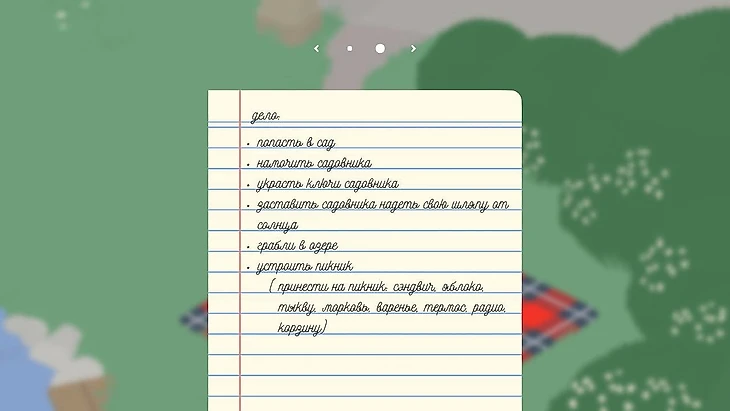 дело:
• попасть в сад
• намочить садовника
• украсть ключи садовника
• заставить садовника надеть свою шляпу от
солнца
• грабли в озере
• устроить пикник
( принести на пикник: сэндвич, яблоко,
тыкву, морковь, варенье, термос, радио,
корзину)